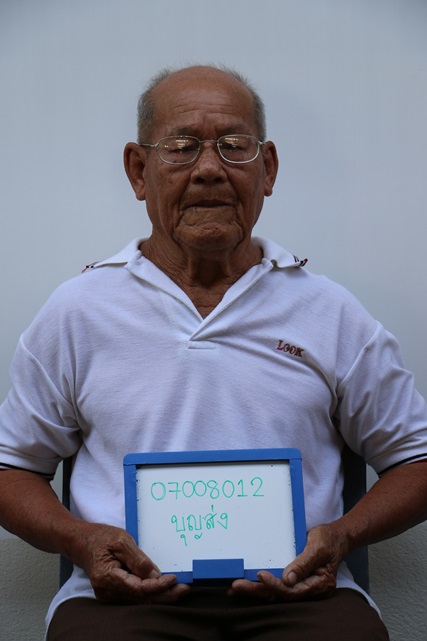 LOOK
07008012
บุญส่ง